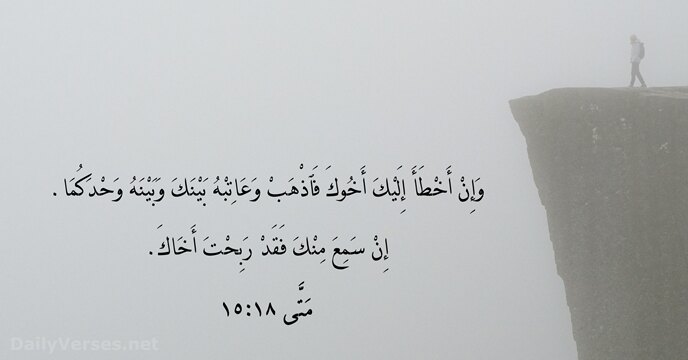 وَإِنْ أَخْطَأَ إِلَيْكَ أَخُوكَ فَٱذْهَبْ وَعَاتِبْهُ بَيْنَكَ وَبَيْنَهُ وَحْدَكُمَا .
إِنْ سَمِعَ مِنْكَ فَقَدْ رَبِحْتَ أَخَاكَ.
مَتَّى ١٥:١٨
DailyVerses.net